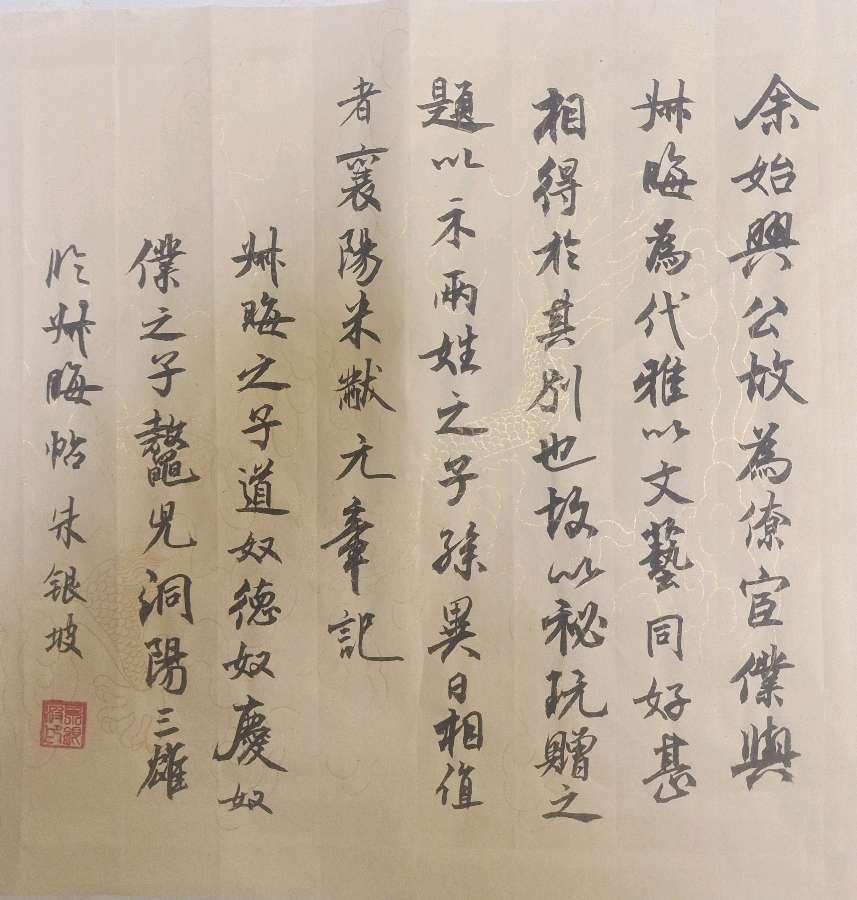 余始興公故為僚宦僕與
叔晦為代雅以文藝同好甚
相得於其別也故以秘玩贈之
題以示兩姓之子孫異日相值
者襄陽米黻元章記
叔晦之子道奴德奴慶奴
僕之子鼇兒洞陽三雄
臨叔晦帖朱銀坡